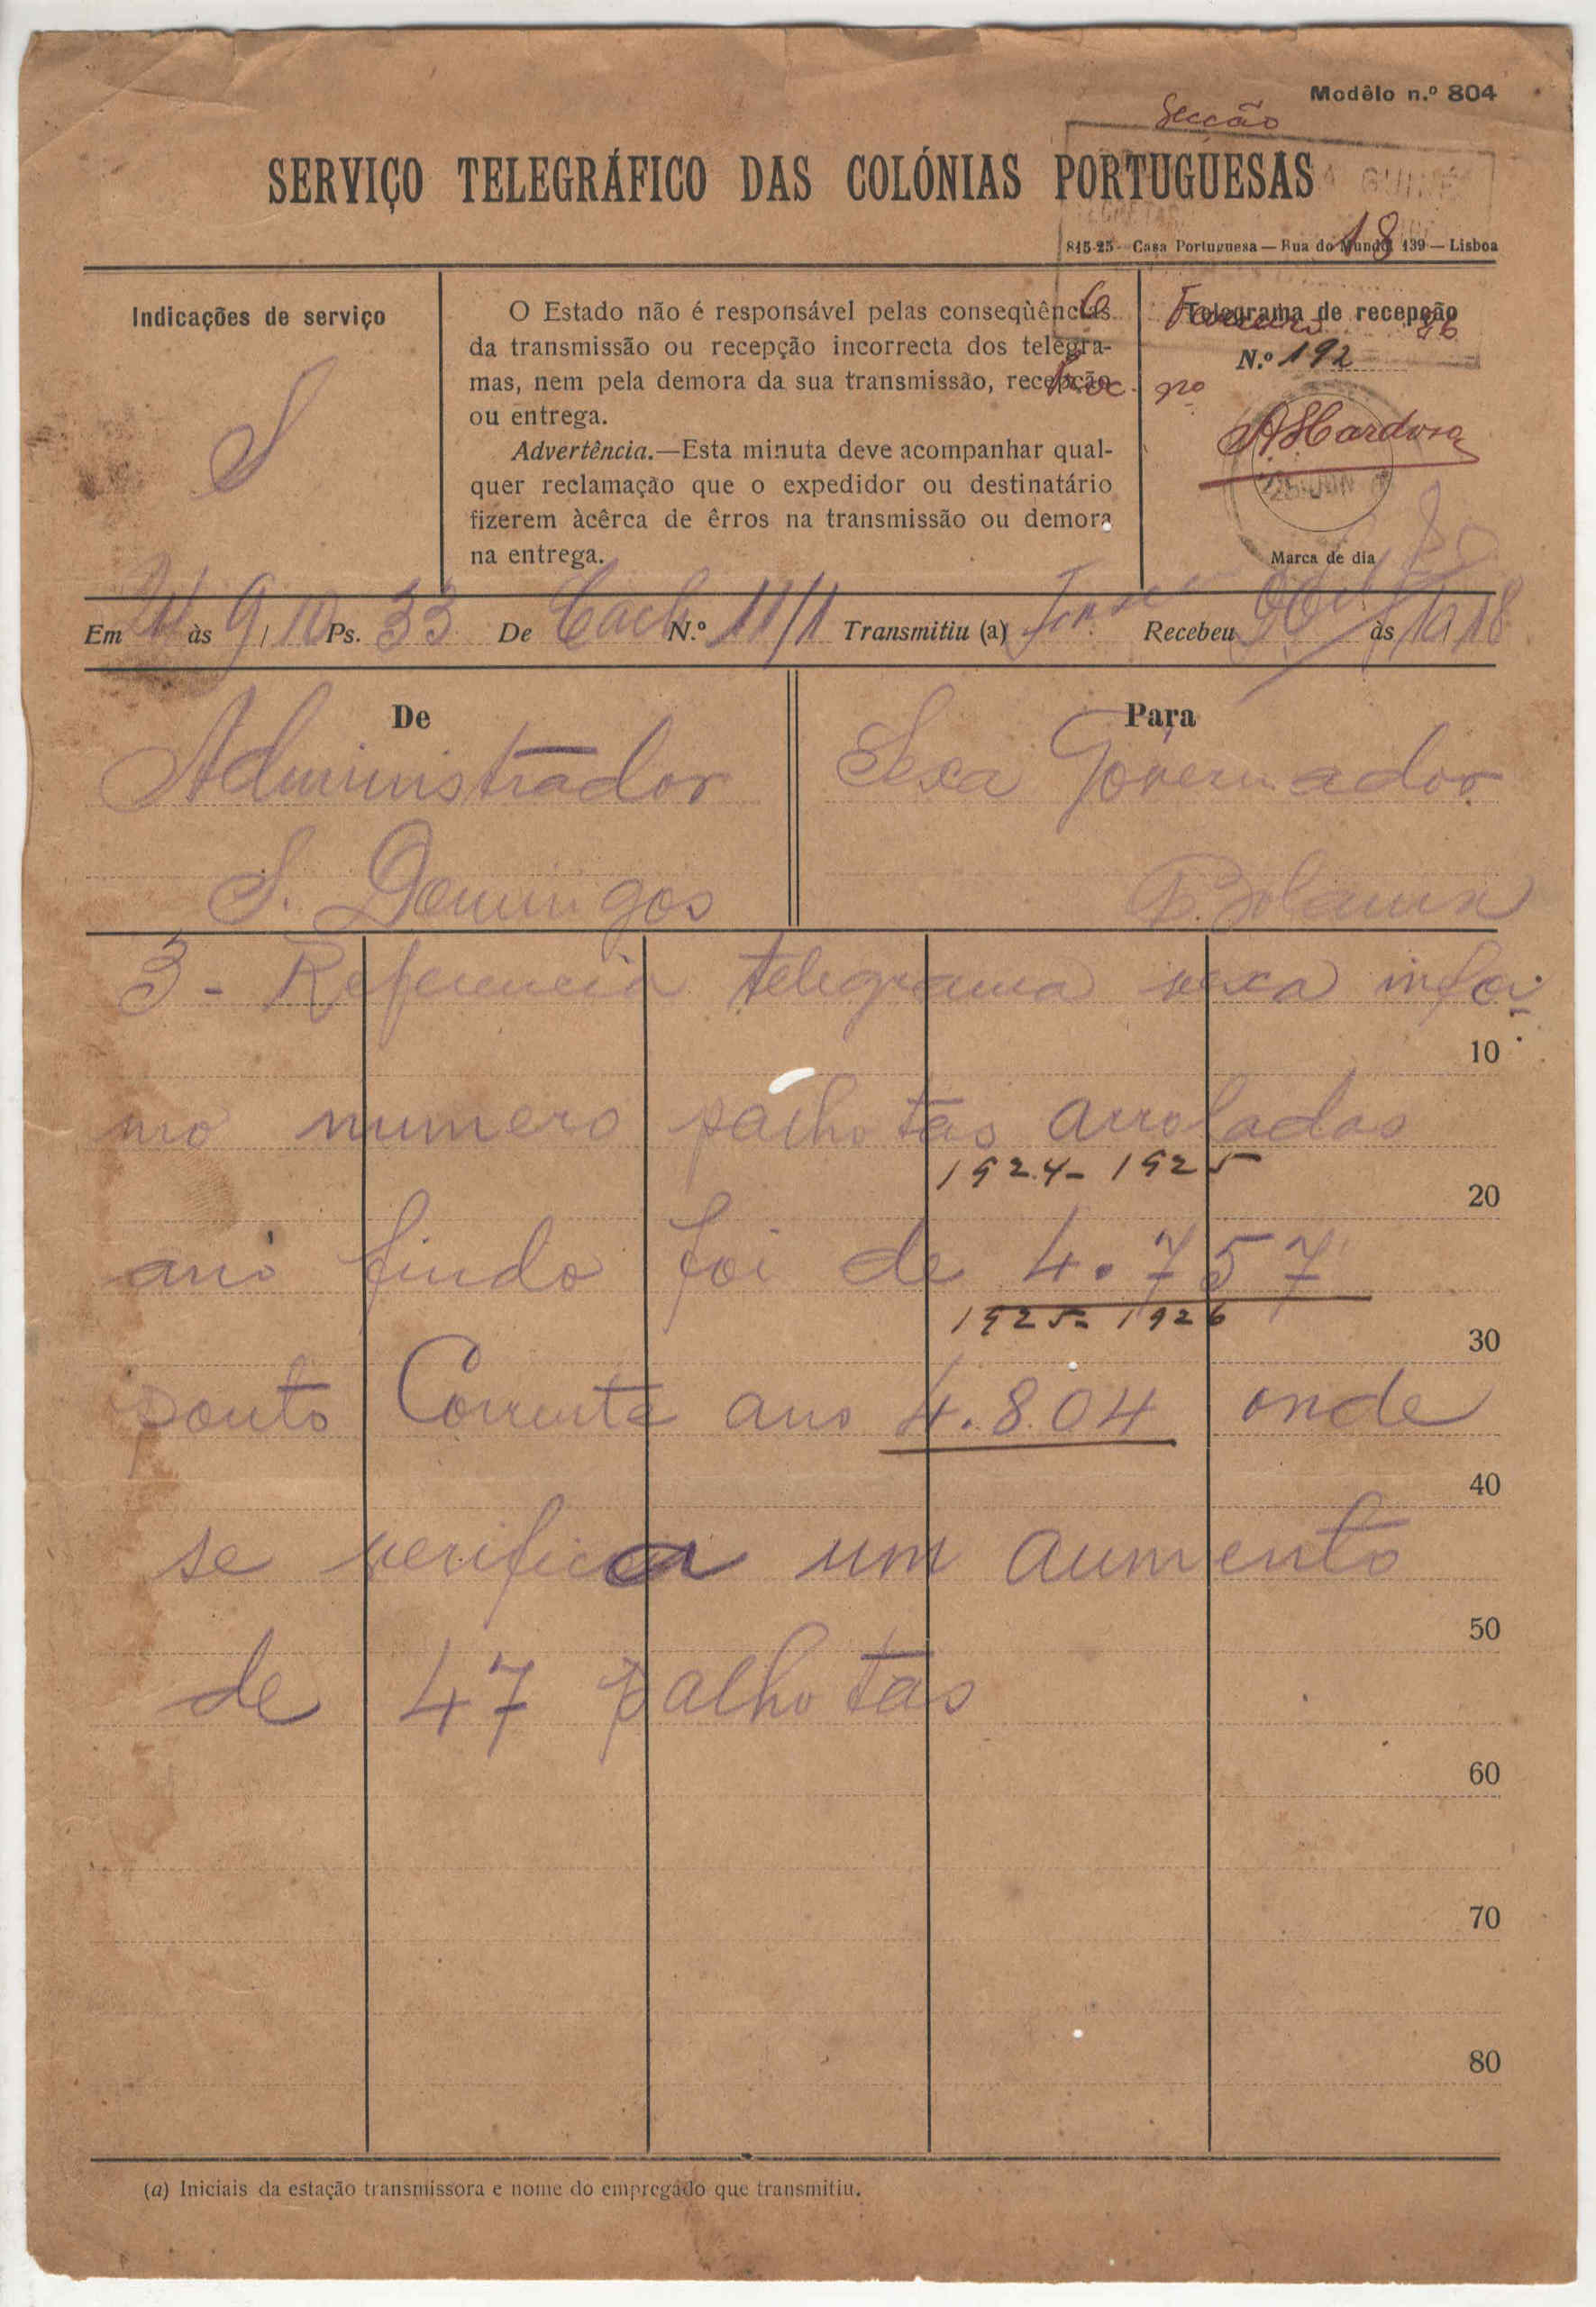 Modêlo n.º 804
Secção
SERVIÇO TELEGRÁFICO DAS COLÓNIAS PORTUGUESAS
GUINÉ
815-25 - Casa Portuguesa — Rua do Mundo, 139 — Lisboa
18
Indicações de serviço
S
O Estado não é responsável pelas conseqüências
da transmissão ou recepção incorrecta dos telegra-
mas, nem pela demora da sua transmissão, recepção
ou entrega.
Advertência.—Esta minuta deve acompanhar qual-
quer reclamação que o expedidor ou destinatário
fizerem àcêrca de êrros na transmissão ou demora
na entrega.
Telegrama de recepção
Fevereiro 26
N.º 192
Proc. nº
Marca de dia
Em às 9/10 Ps. 33 De Cach N.º 11/1 Transmitiu (a) Recebeu às
De
Administrador
S. Domingos
Para
Sexa Governador
Bolama
3 - Referencia telegrama sexa infor-
10
mo numero palhotas arroladas
1924-1925
20
ano findo foi de 4.757
1925-1926
30
ponto Corrente ano 4.804 onde
40
se verifica um aumento
50
de 47 palhotas
60
70
80
(a) Iniciais da estação transmissora e nome do empregado que transmitiu.